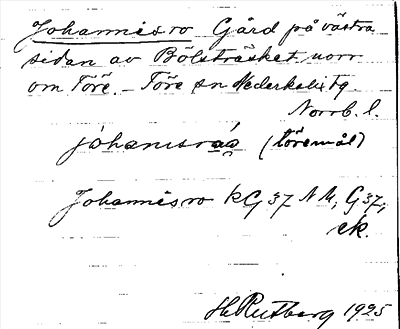 Johannesro Gård på västra
sidan av Bölsträsket norr
om Töre. – Töre sn Nederkalix tg
Norrb. l.
johanısrǻǻ (töremål)
Johannesro kG 37 NM, G 37,
ek.
H Rutberg 1925